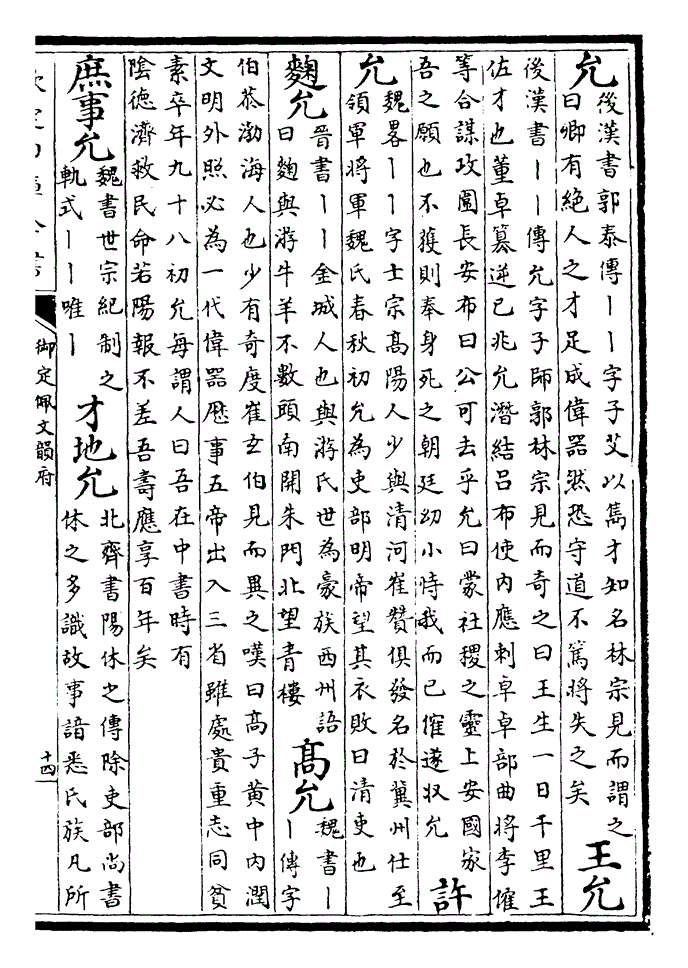 允
後漢書郭泰傳丨丨字子艾以雋才知名林宗見而謂之
曰卿有絶人之才足成偉器然恐守道不篤將失之矣
王允
後漢書丨丨傳允字子師郭林宗見而奇之曰王生一日千里王
佐才也董卓篡逆已兆允潛結吕布使内應刺卓卓部曲將李傕
等合謀攻圍長安布曰公可去乎允曰蒙社稷之靈上安國家
吾之願也不獲則奉身死之朝廷幼小恃我而已傕遂収允
許
允
魏畧丨丨字士宗高陽人少與清河崔贊俱發名於冀州仕至
領軍將軍魏氏春秋初允為吏部明帝望其衣敗曰清吏也
麴允
晉書丨丨金城人也與游氏世為豪族西州語
曰麴與游牛羊不數頭南開朱門北望青樓
高允
魏書丨
丨傳字
伯恭渤海人也少有奇度崔玄伯見而異之嘆曰高子黄中内潤
文明外照必為一代偉器歷事五帝出入三省雖處貴重志同貧
素卒年九十八初允每謂人曰吾在中書時有
陰德濟救民命若陽報不差吾壽應享百年矣
庶事允
魏書世宗紀制之
軌式丨丨唯丨
才地允
北齊書陽休之傳除吏部尚書
休之多識故事諳悉氏族凡所
御定佩文韻府
十四